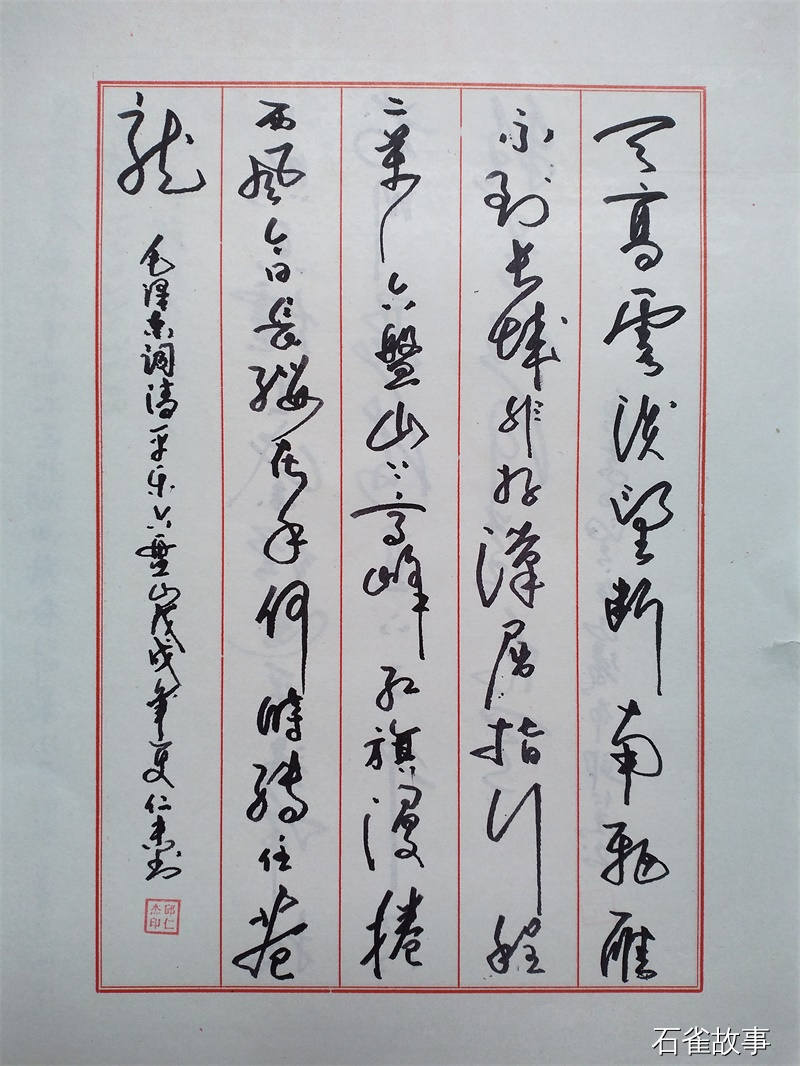 天高雲淡望断南飛雁
不到长城非好漢屈指行程
二萬六盤山上高峰红旗漫捲
西風今日長缨在手何時縛住蒼
龍
毛泽东词清平乐六盤山戊戌年夏仁杰书
邱仁杰印
石雀故事